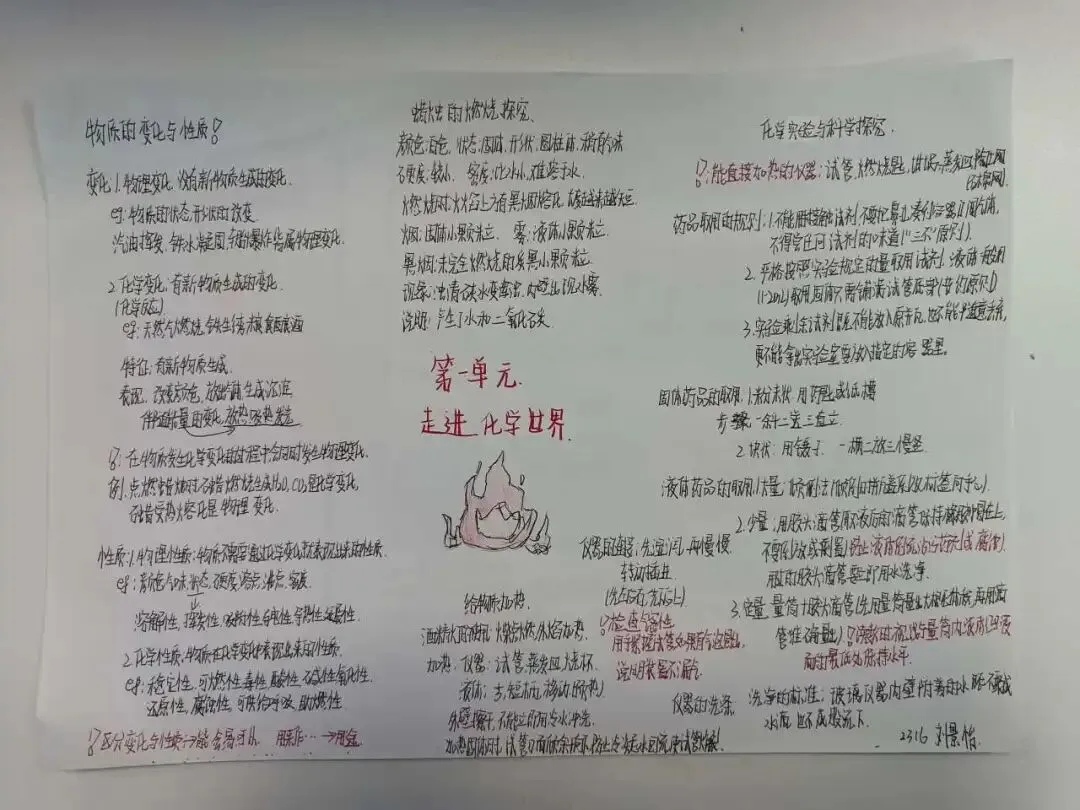 物质的变化与性质！
变化 1.物理变化：没有新物质生成的变化.
eg：物质的状态.形状的改变
汽油挥发、铁水凝固、车胎爆炸皆属物理变化.
2.化学变化：有新物质生成的变化.
(化学反应)
eg：天然气燃烧、铁生锈、食醋
特征：有新物质生成.
表现：改变颜色、放出气体、生成沉淀
伴随能量的变化，放热、吸热、发光
！：在物质发生化学变化的过程中会同时发生物理变化.
例.点燃蜡烛时石蜡燃烧生成H₂O、CO₂是化学变化,
石蜡受热熔化是物理变化.
性质：1.物理性质：物质不需要通过化学变化就表现出来的性质.
eg：颜色、气味、状态、硬度、熔点、沸点、密度
溶解性、挥发性、吸附性、导电性、导热性、延展性.
2.化学性质：物质在化学变化中表现出来的性质.
eg：稳定性、可燃性、毒性、酸性、碱性、氧化性、
还原性、腐蚀性、可供给呼吸、助燃性.
！区分变化与性质→能 会 易 可以 用来作…→用途
蜡烛的燃烧探究
颜色：白色、状态：固体、形状：圆柱体、稍有气味
硬度：较小 密度：比水小、难溶于水.
燃烧时：火焰上方有黑烟、熔化、越来越短.
烟：固体小颗粒. 雾：液体小颗粒.
黑烟：未完全燃烧的炭黑小颗粒.
现象：澄清石灰水变浑浊、内壁出现小雾.
说明：产生了水和二氧化碳
第一单元.
走进化学世界.
给物质加热.
酒精灯的使用 外焰加热.
加热：仪器：试管、蒸发皿、烧杯
液体：夹、短柄、移动(预热)
外壁擦干、不能立即用冷水冲洗.
加热固体时：试管口向下倾斜
仪器的连接：先湿润、再慢慢
转动插进
(先左后右，先下后上)
！检查气密性
用手紧握试管如果有气泡冒出,
说明装置不漏气
仪器的洗涤
化学实验与科学探究.
！：能直接加热的仪器：试管、燃烧匙、坩埚、蒸发皿
(石棉网)
药品取用的规则：1.不能用手接触试剂、不要把鼻孔凑到容器口闻气体,
不得尝任何试剂的味道("三不"原则).
2.严格按照实验规定的量取用试剂、液体一般用
(1~2mL)取用、固体只需铺满试管底部(节约原则)
3.实验剩余试剂既不能放入原瓶、也不能随意丢弃,
更不能拿出实验室要放入指定的容器里.
固体药品的取用：1.粉末状：用药匙或纸槽
步骤：一斜二送三直立.
2.块状：用镊子. 一横二放三慢竖
液体药品的取用：1.大量：倾倒法
2.少量：用胶头滴管
不要倒放或倒置
用过的胶头滴管要立即用水洗净.
3.定量：量筒+胶头滴管
！读数时视线与量筒内液体凹液
面的最低处保持水平.
洗净的标准：玻璃仪器内壁附着的水既不聚成
水滴也不成股流下.
2316 刘景怡